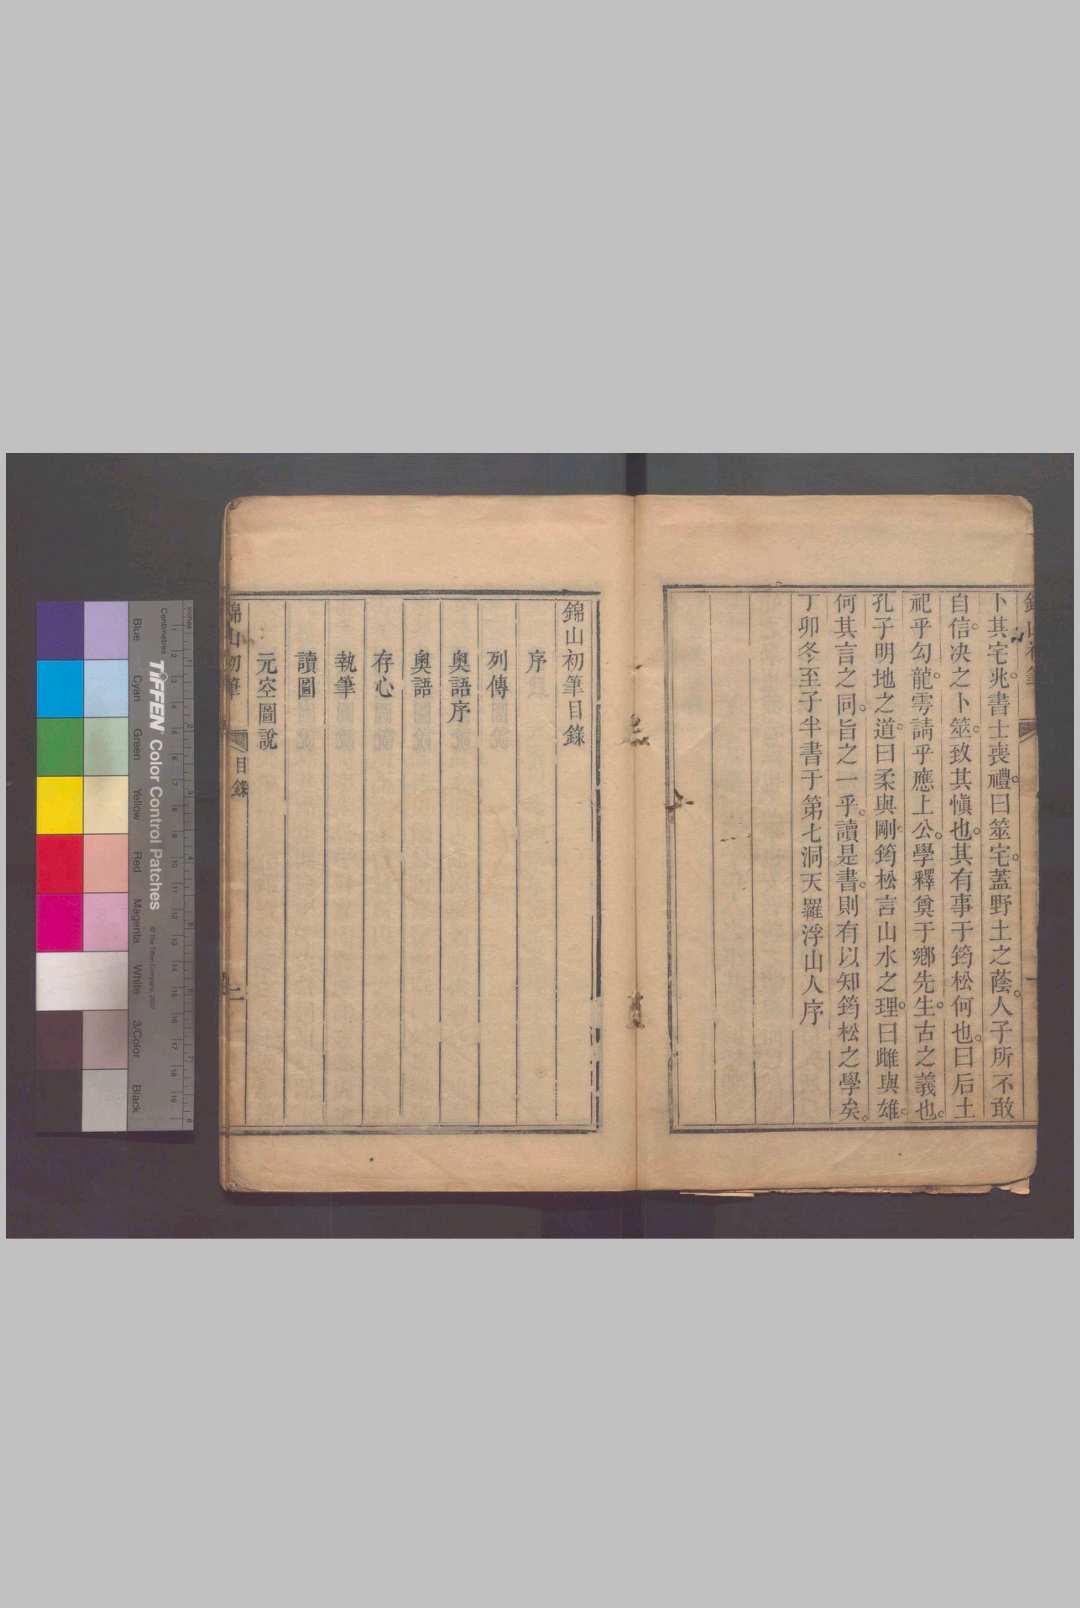 卜其宅兆。書士喪禮。曰筮宅。蓋野土之蔭。人子所不敢
自信。决之卜筮。致其愼也。其有事于筠松何也。曰后土
祀乎勾龍。雩請乎應上公。學釋奠于鄕先生。古之義也。
孔子明地之道。曰柔與剛。筠松言山水之理。曰雌與雄。
何其言之同。旨之一乎。讀是書。則有以知筠松之學矣。
丁卯冬至子半書于第七洞天羅浮山人序
錦山初筆目錄
序
列傳
奧語序
奧語
存心
執筆
讀圖
元空圖說
錦山初筆 目錄 二
inches
Centimetres
TIFFEN Color Control Patches
© The Tiffen Company, 2007
Blue
Cyan
Green
Yellow
Red
Magenta
White
3/Color
Black